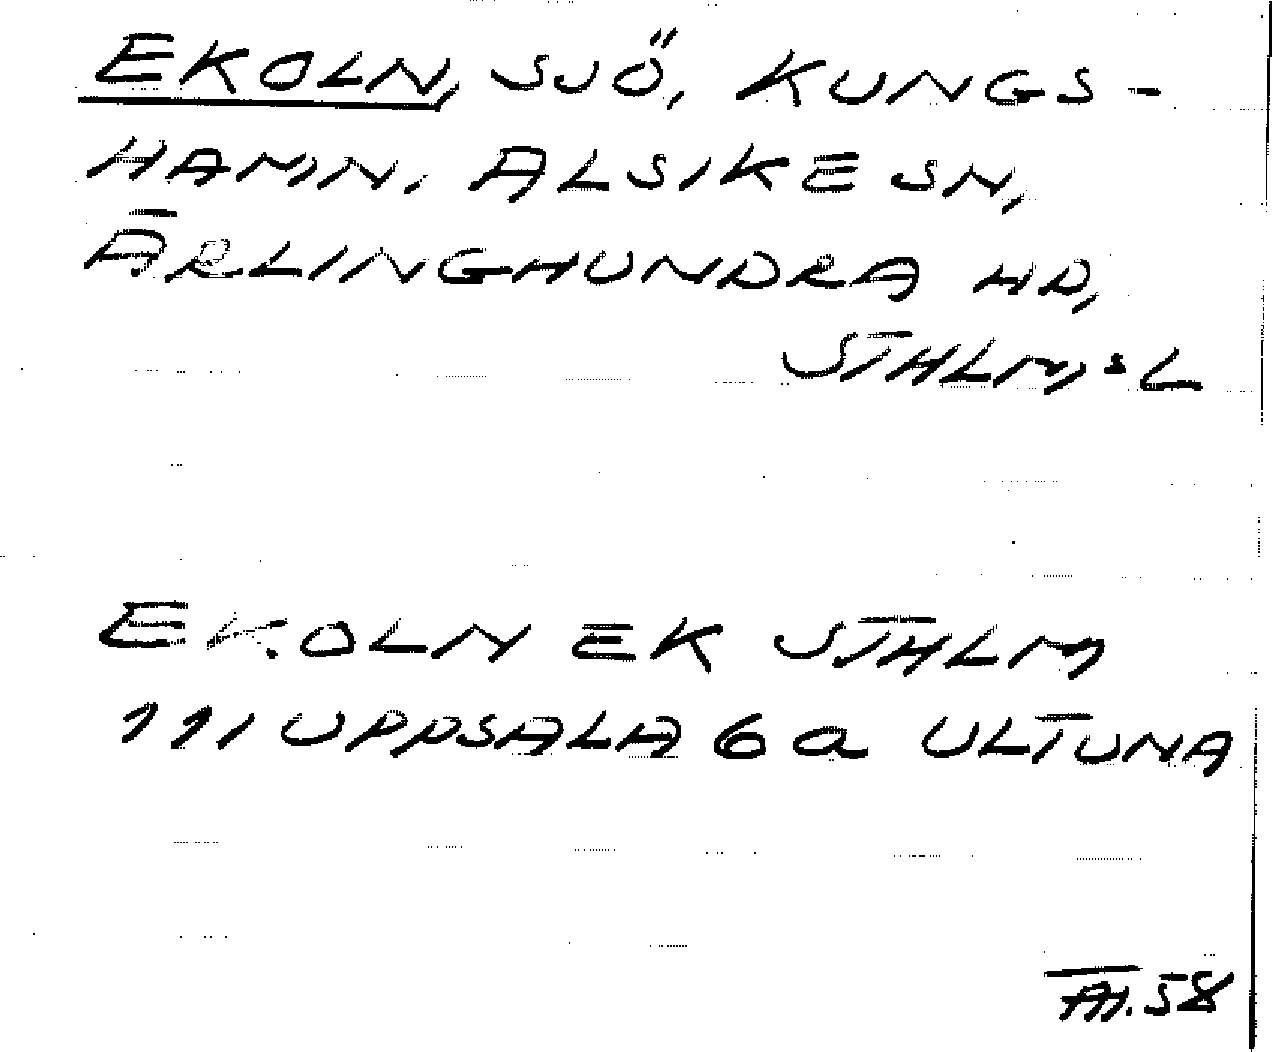 EKOLN, SJÖ, KUNGS-
HAMN, ALSIKE SN,
ÄRLINGHUNDRA HD,
STHLMS L
EKOLN EK STHLM
111 UPPSALA 6 a ULTUNA
58